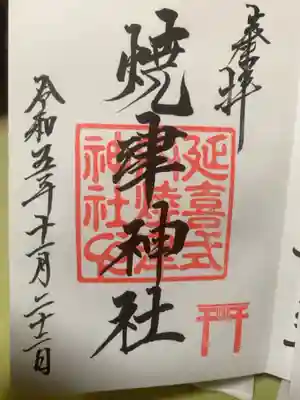 奉拝
焼津神社
延喜式
焼津
神社
令和五年十一月二十二日